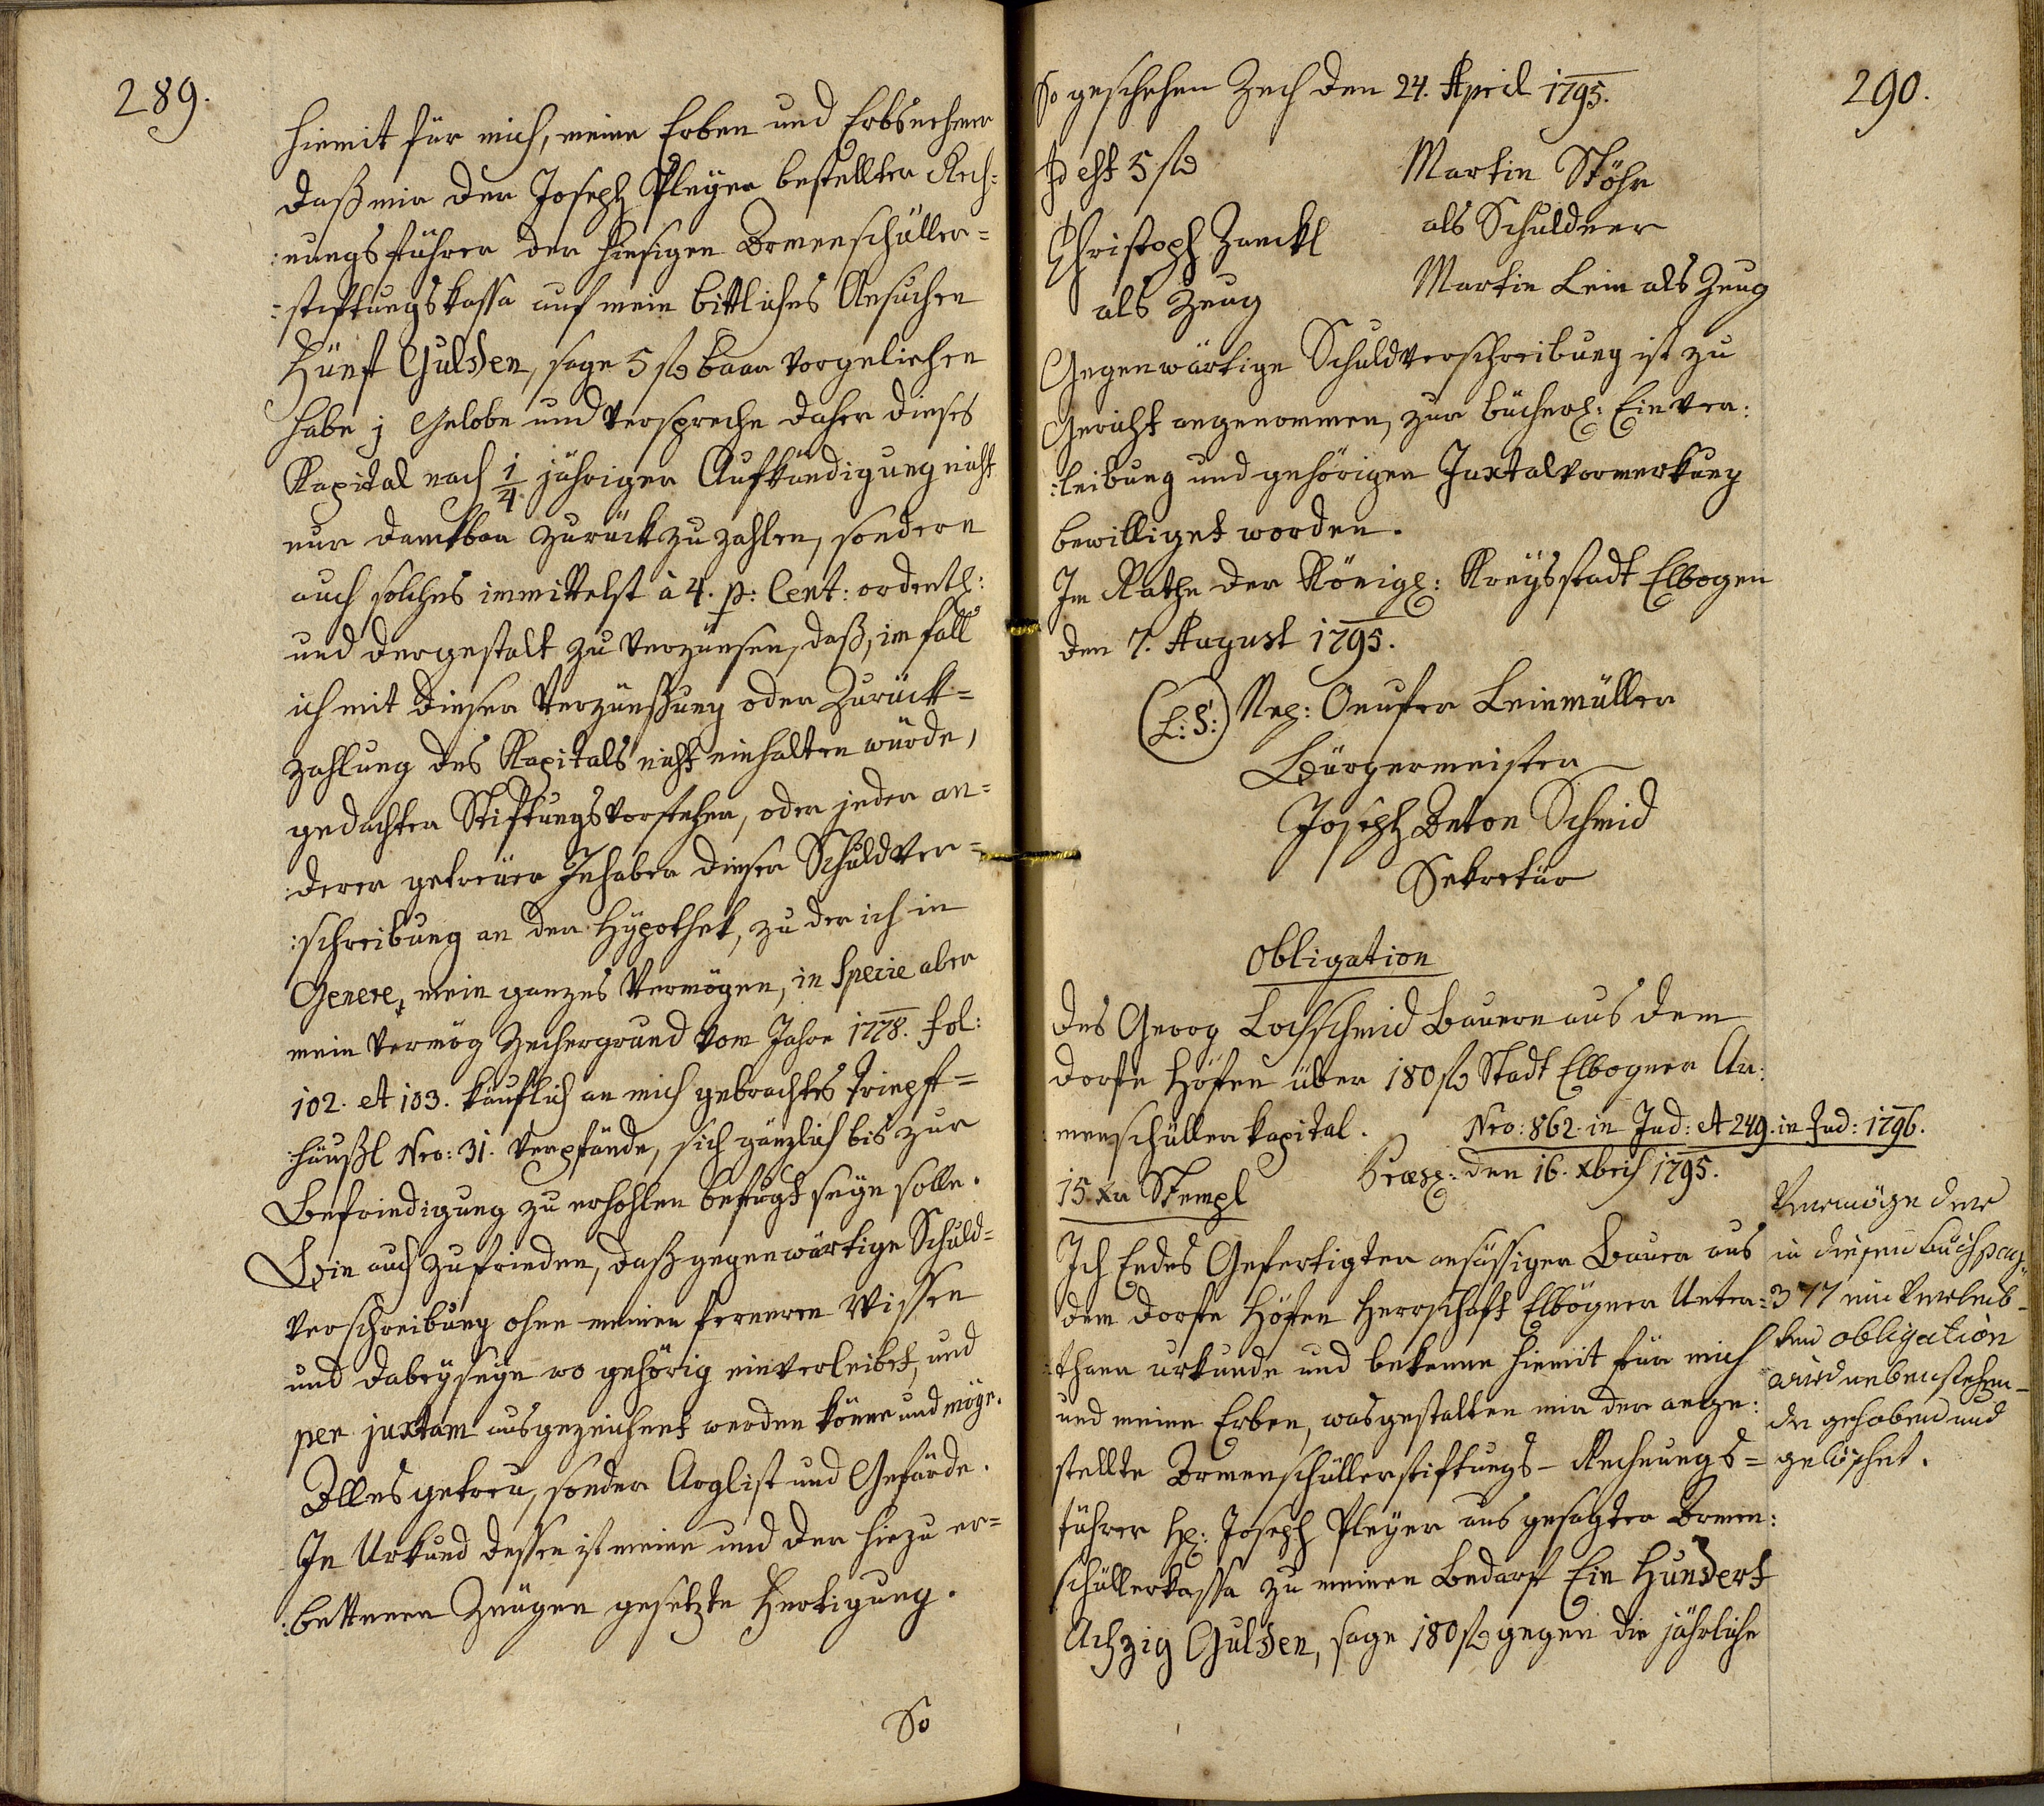 289.
hiemit für mich, meine Erben und Erbsnehmer
daß mir der Joseph Pleyer bestellter Rech:
:nungsführer der hiesigen Armenschüller=
:stiftungskassa auf mein bittliches Ansuchen
Fünf Gulden, sage 5 fl baar vorgeliehen
habe; Gelobe und verspreche daher dieses
Kapital nach 1/4 jähriger Aufkündigung nicht
nur dankbar zurückzuzahlen, sondern
auch solches inmittelst à 4. p: Cent: ordentl:
und dergestalt zu verzünsen, daß, im fall
ich mit dieser Verzünßung oder Zurück=
zahlung des Kapitals nicht einhalten würde,
gedachter Stiftungsvorsteher, oder jeder an=
:derer getreüer Inhaber dieser Schuldver=
:schreibung an der Hÿpothek, zu der ich in
Genere, mein ganzes Vermögen, in Specie aber
mein vermög Zechergrund vom Jahre 1778. fol:
102. et 103. käuflich an mich gebrachtes Trinpft=
:häußl Nro: 31. verpfände, sich gänzlich bis zur
Befriedigung zu erhohlen befugt seyn solle.
Bin auch zufrieden, daß gegenwärtige Schuld=
verschreibung ohne meinen ferneren Wissen
und dabeyseyn wo gehörig einverleibet, und
per juxtam ausgezeichnet werden könne und möge.
Alles getreu, sonder Arglist und Gefärde.
In Urkund dessen ist meine und der hiezu er=
:bettenen Zeügen gesetzte Fertigung.
So
290.
So geschehen Zech den 24. April 1795.
Id est 5 fl
Martin Stöhr
als Schuldner
Christoph Zanckl
als Zeug
Martin Lein als Zeug
Gegenwärtige Schuldverschreibung ist zu
Gericht angenommen, zur bücherl: Einver:
:leibung und gehörigen Juxtalvormerkung
bewilliget worden.
Im Rathe der Königl: Kreysstadt Elbogen
den 7. August 1795.
(L:S:) Nep: Onufer Leinmüller
Bürgermeister
Joseph Anton Schmid
Sekretär
Obligation
des Georg Lochschmid Bauern aus dem
dorfe Höfen über 180 fl Stadt Elbogner Ar:
:menschüller kapital.
Nro: 862. in Jud: et 249. in Jud: 1796.
15. xr Stempl
Præs: den 16. xbris 1795.
Ich Endes Gefertigter ansässiger Bauer aus
dem dorfe Höfen Herrschaft Elbögner Unter=
:thann urkunde und bekenne hiemit für mich
und meine Erben, was gestalten mir der ange:
stellte Armenschüllerstiftungs- Rechnungs=
führer H: Joseph Pleyer aus gesagter Armen:
schüllerkassa zu meinen Bedarf Ein Hundert
Achzig Gulden, sage 180 fl gegen die jährliche
Vermöge der
in diesem Buch pag:
377 einverleib-
ten obligation
wird nebenstehen-
de gehoben und
gelöschet.